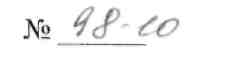 № 98-10